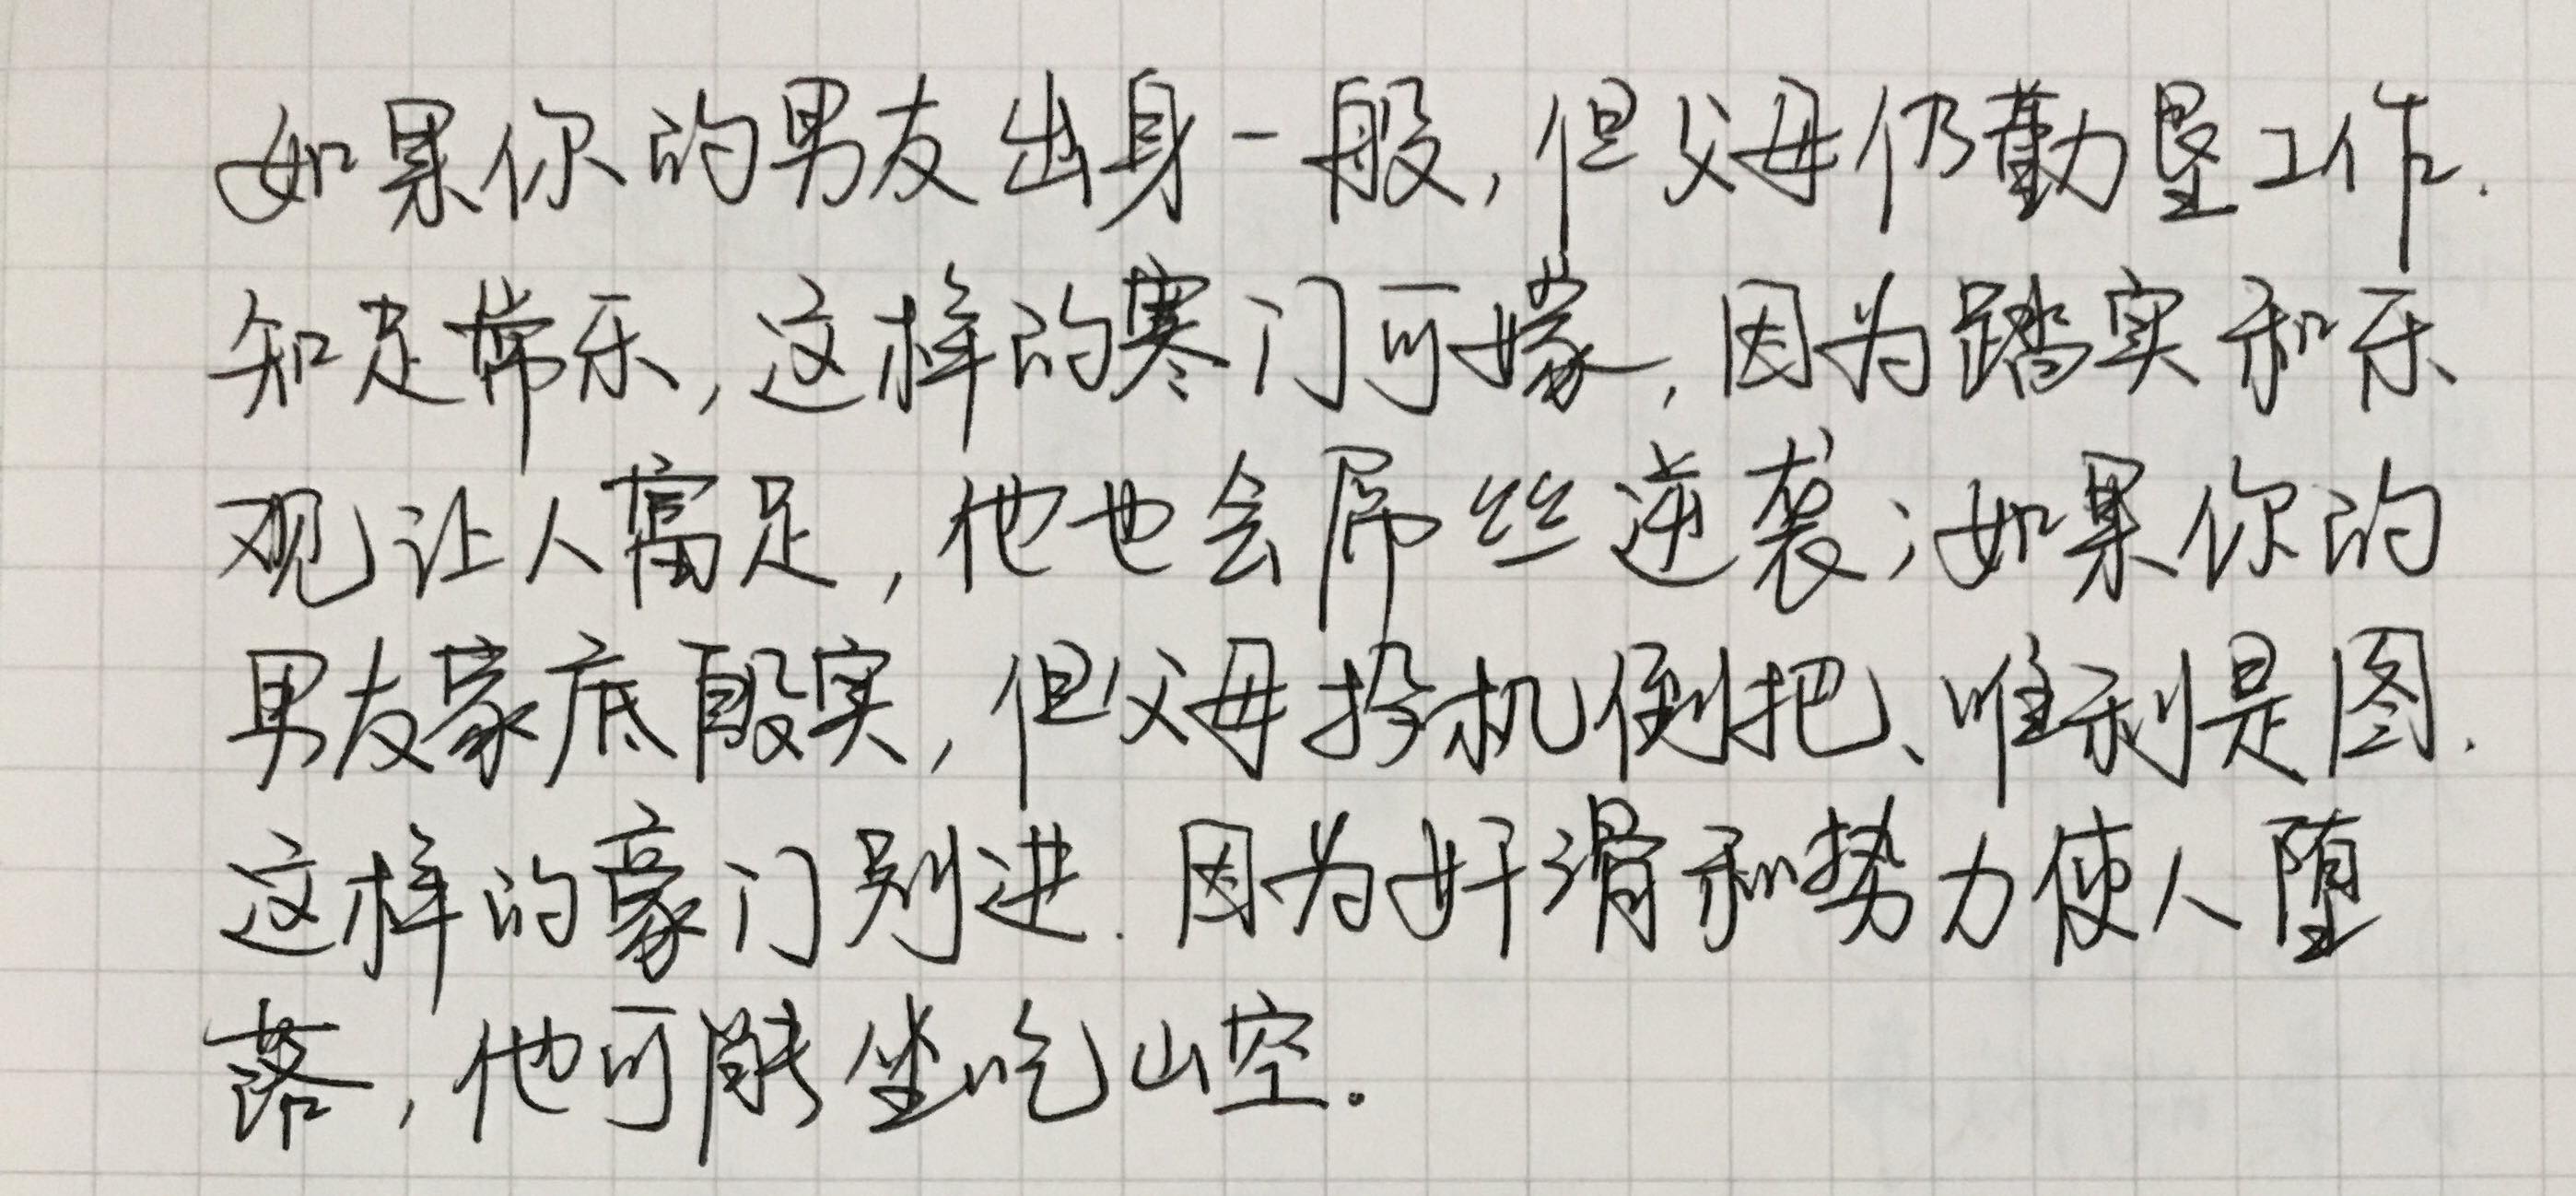 如果你的男友出身一般,但父母仍勤垦工作.
知足常乐,这样的寒门可嫁,因为踏实和乐
观让人富足,他也会屌丝逆袭;如果你的
男友家底殷实,但父母投机倒把、唯利是图.
这样的豪门别进.因为奸滑和势力使人堕
落,他可能坐吃山空.